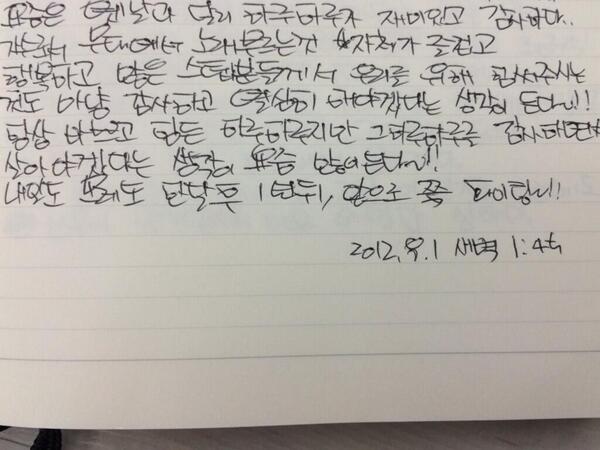 요즘은 옛날과 달리 하루하루가 재미있고 감사하다.
무대에서 노래부르는것 자체가 즐겁고
행복하고 많은 스탭분들께서 우리를 위해 힘써주시는
것도 마냥 감사하고 열심히 해야겠다는 생각이 든다!!
항상 바쁘고 힘든 하루하루지만 그하루하루를 감사하면서
살아야겠다는 생각이 요즘 많이든다!!
내일도 모레도 한달후 1년뒤, 앞으로 쭉 화이팅!!
2012. 8. 1 새벽 1:44